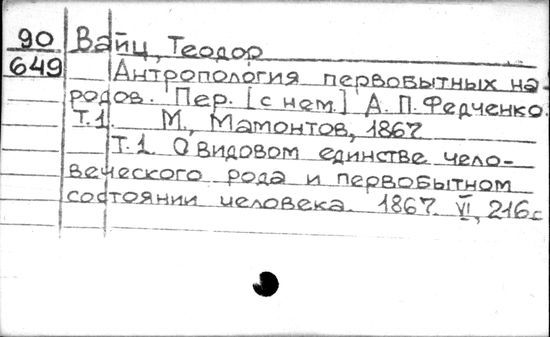 90 Вайц, Теодор
649 Антропология первобытных на-
родов. Пер. [с нем.] А.П.Федченко.
Т.1. М., Мамонтов, 1867
Т.1. О видовом единстве чело-
веческого рода и первобытном
состоянии человека. 1867. VI, 216с